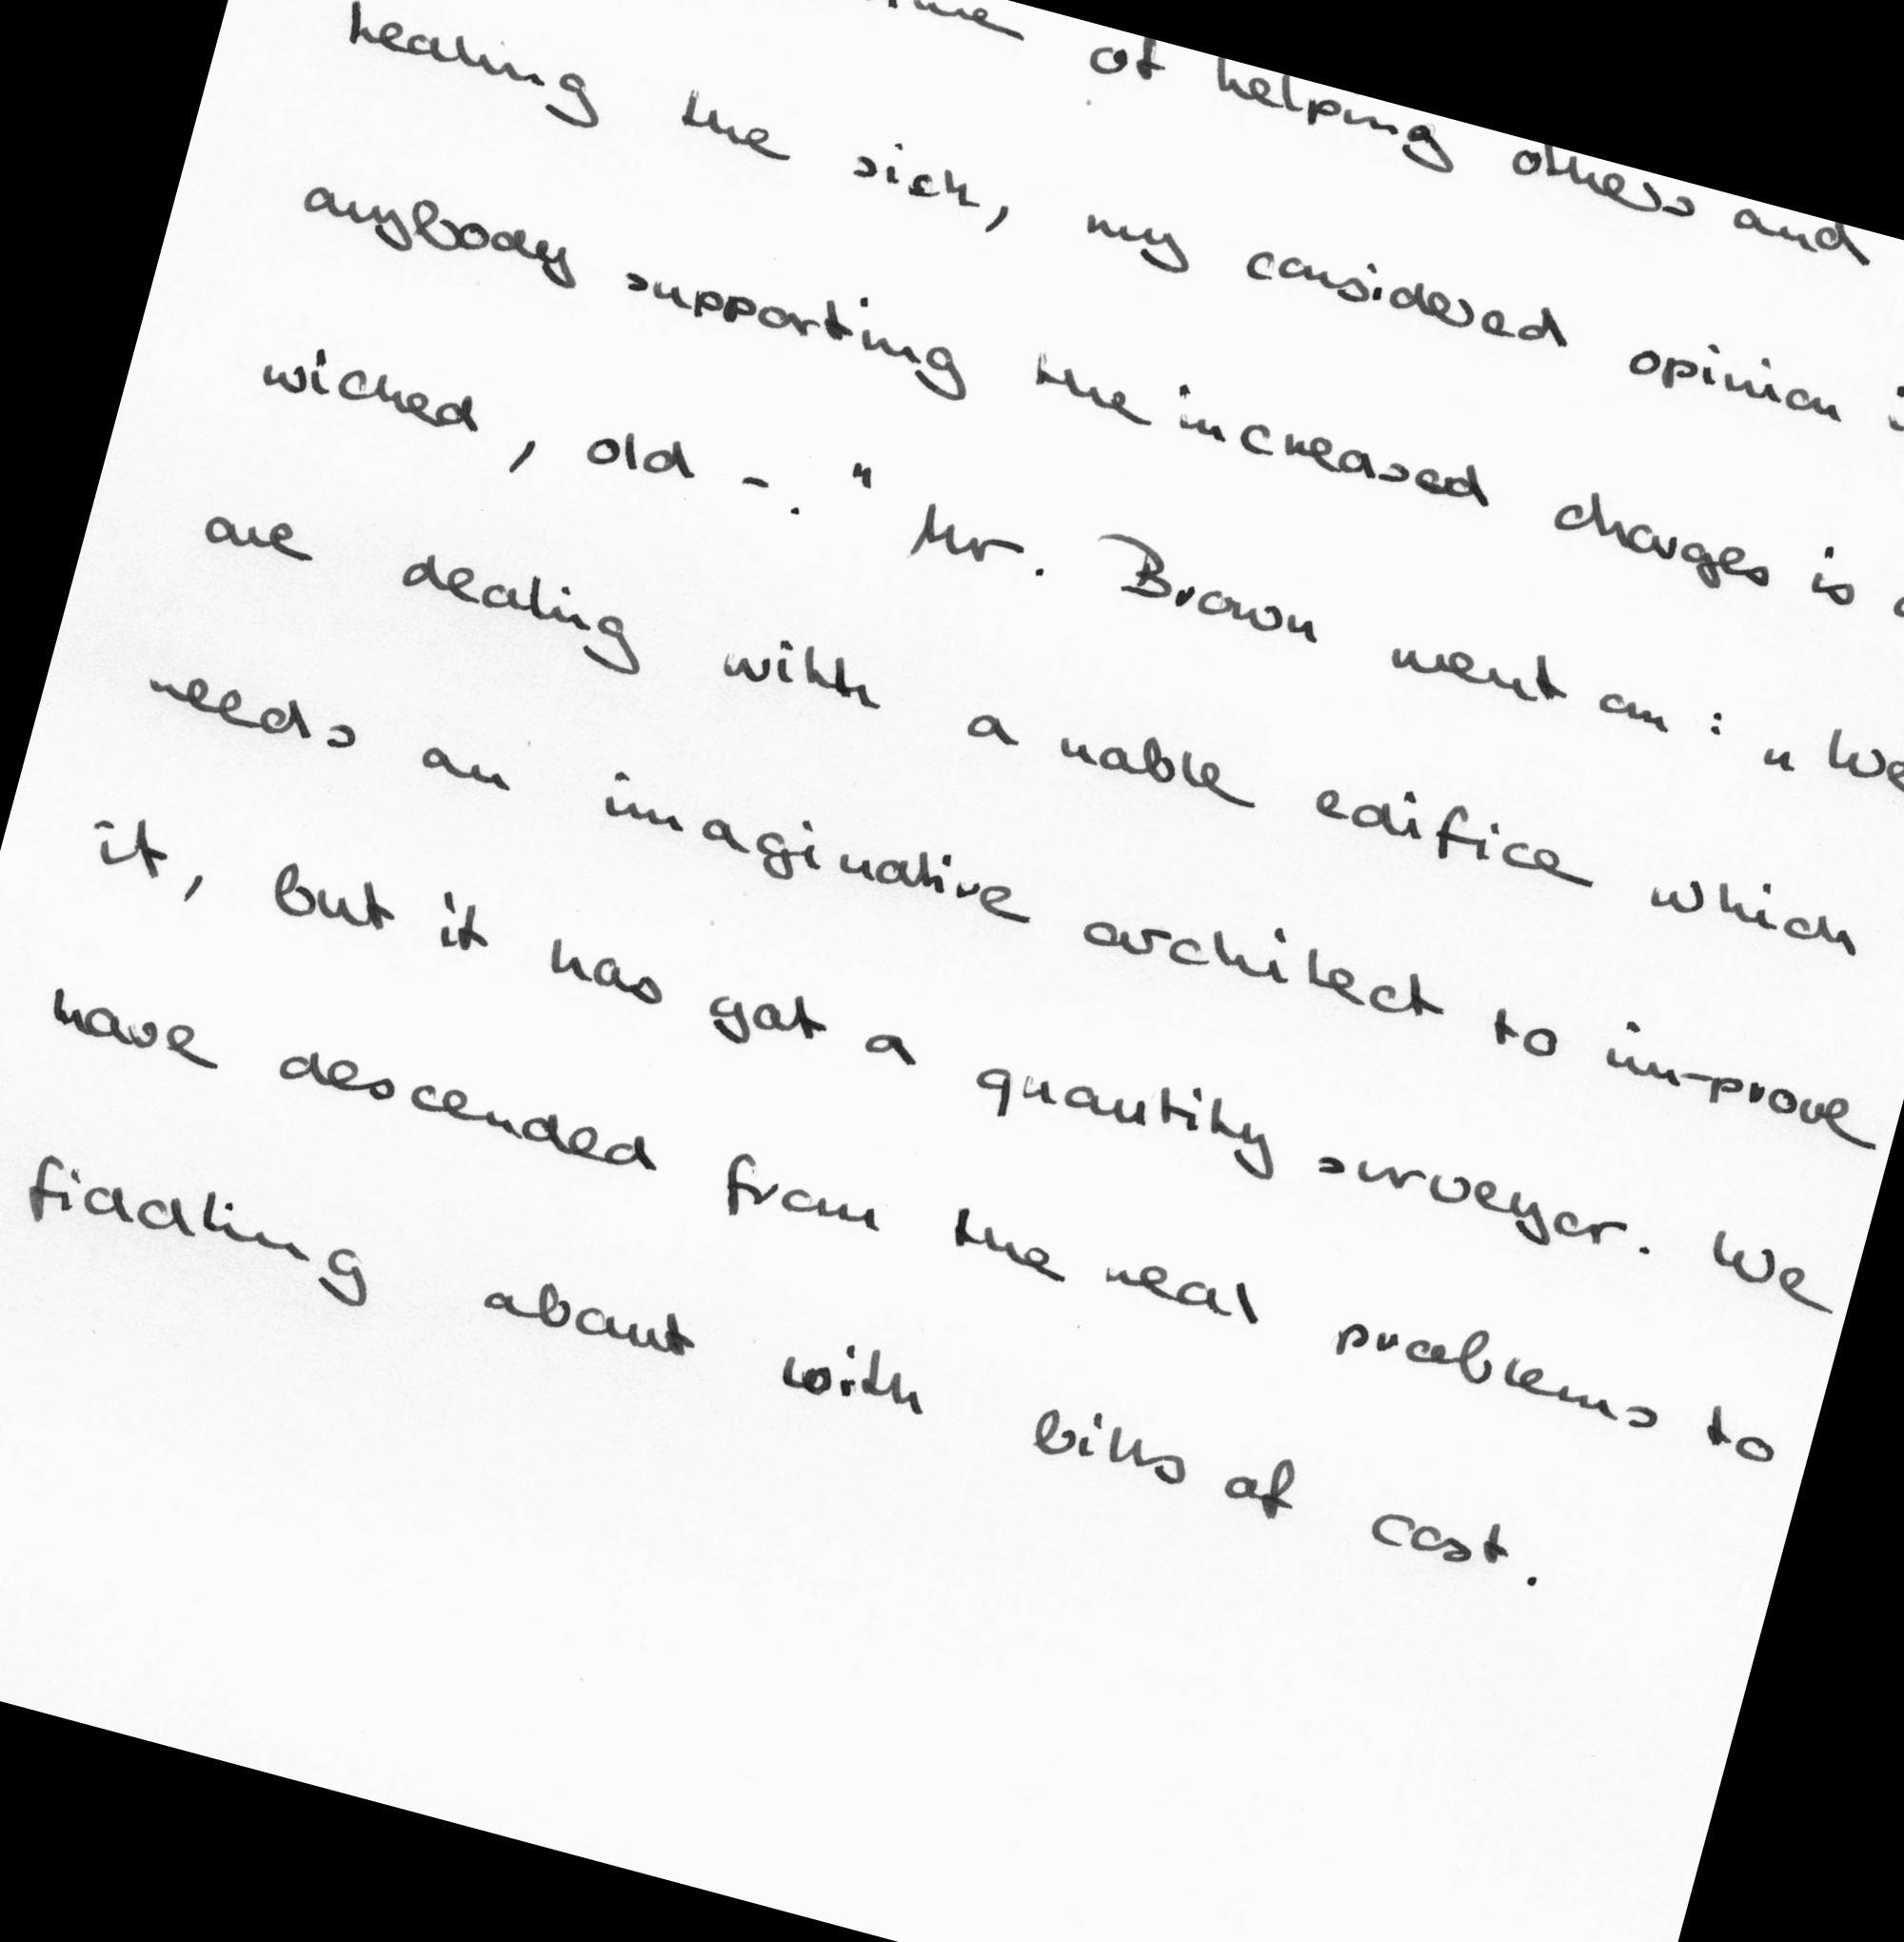 of helping others and
healing the sick, my considered opinion
anybody supporting the increased charges is
wicked, old -." Mr. Brown went on: "We
are dealing with a noble edifice which
needs an imaginative architect to im-prove
it, but it has got a quantity surveyor. We
have descended from the real problems to
fiddling about with bills of cost.